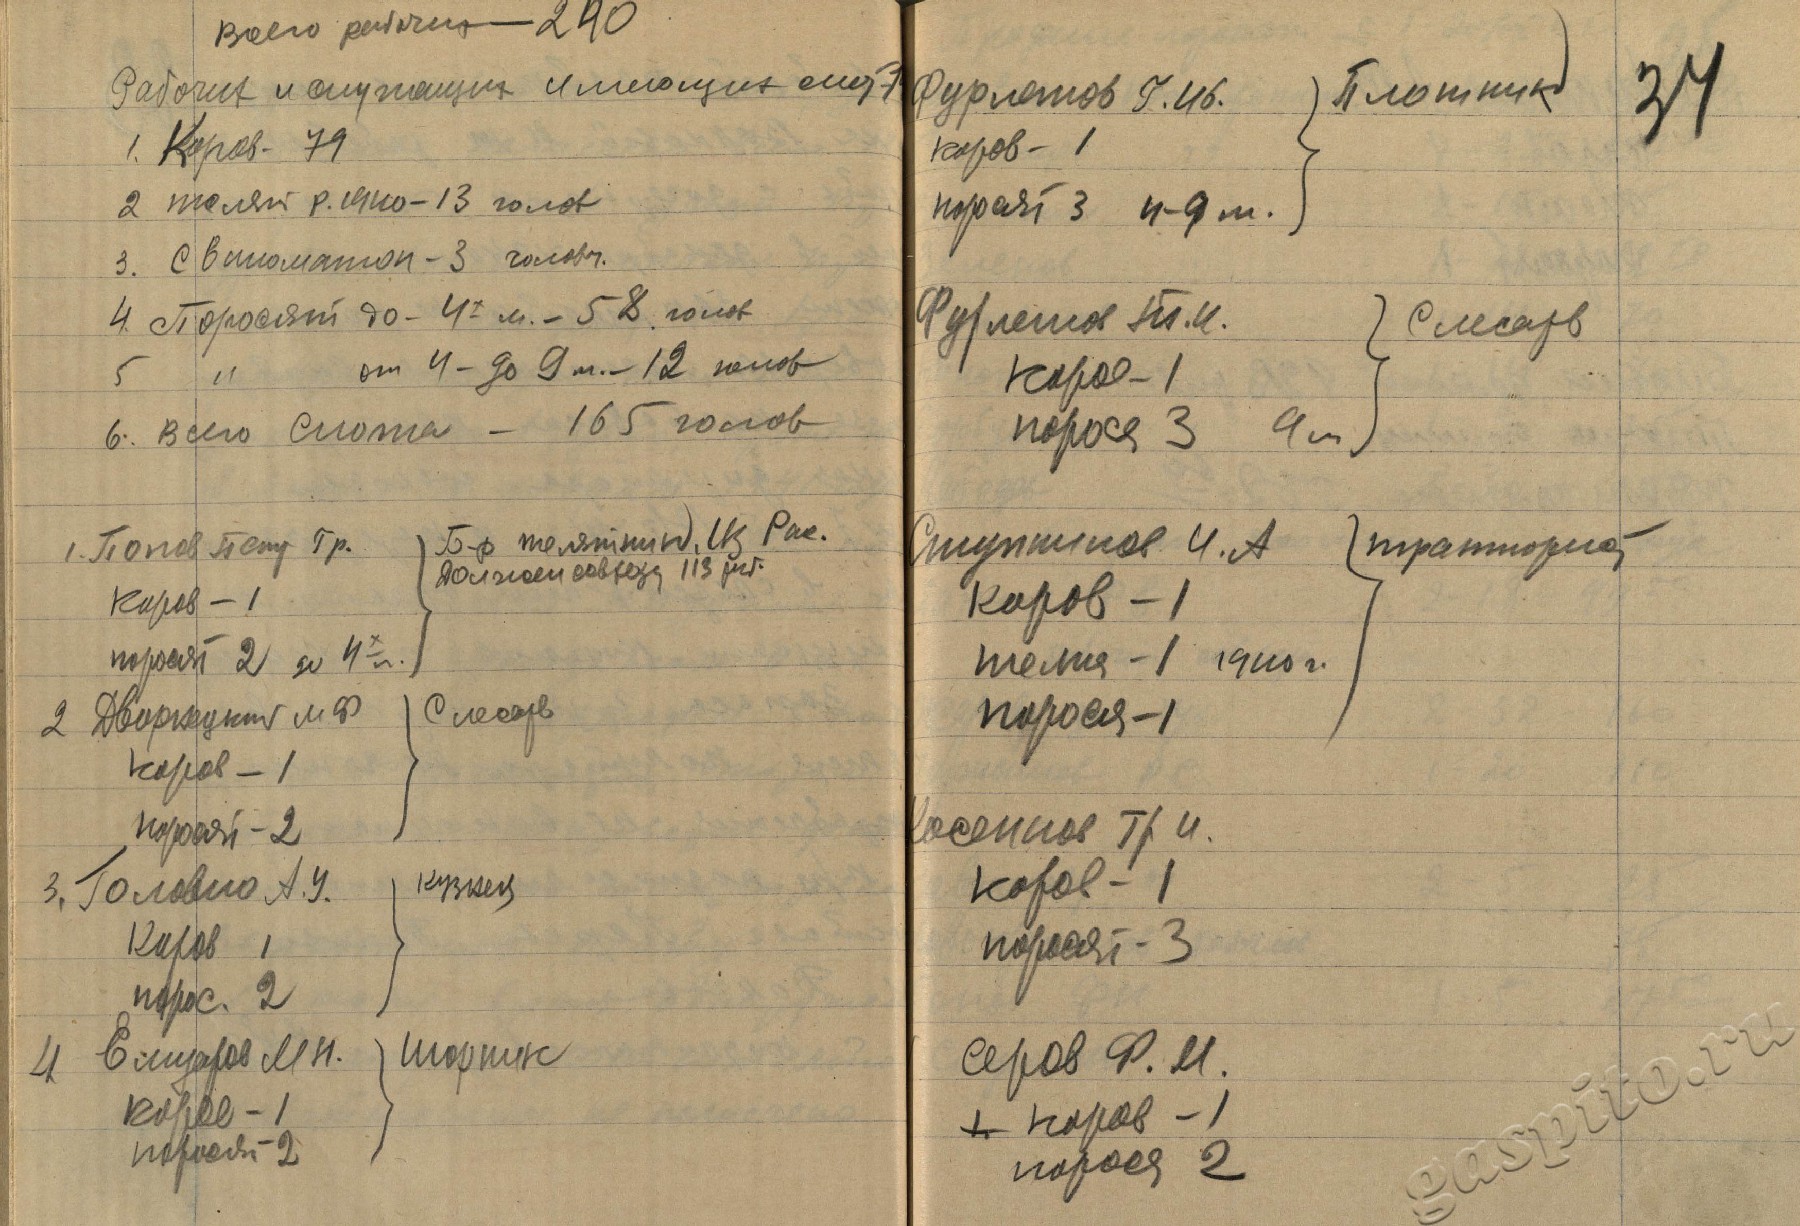 Всего рабочих — 240
Рабочих и служащих имеющих скот
1. Коров - 79
2 телят р. 1940 - 13 голов
3. Свиноматок - 3 головы.
4. Поросят до - 4х м. - 58 голов
5 " от 4 - до 9 м. - 12 голов
6. Всего скота - 165 голов
1. Попов Гр.
Б-р телятник), Из Рас.
Должен совхозу 113 руб.
Коров - 1
поросят 2 до 4х м.
2 Дворжецкий М Ф
Слесарь
Коров - 1
поросят - 2
3. Головко А.У.
Кузнец
Коров 1
порос. 2
4 М Н.
Шорник
Коров - 1
поросят 2
34
Фурлетов Г. Ив.
Плотник)
Коров - 1
поросят 3 4-9 м.
Фурлетов И.
Слесарь
Коров - 1
порося 3
Ступников И. А
тракторист
Коров - 1
телка - 1 1940 г.
порося - 1
Гр И.
Коров - 1
поросят - 3
Серов Ф. М.
Коров - 1
порося 2
gaspito.ru